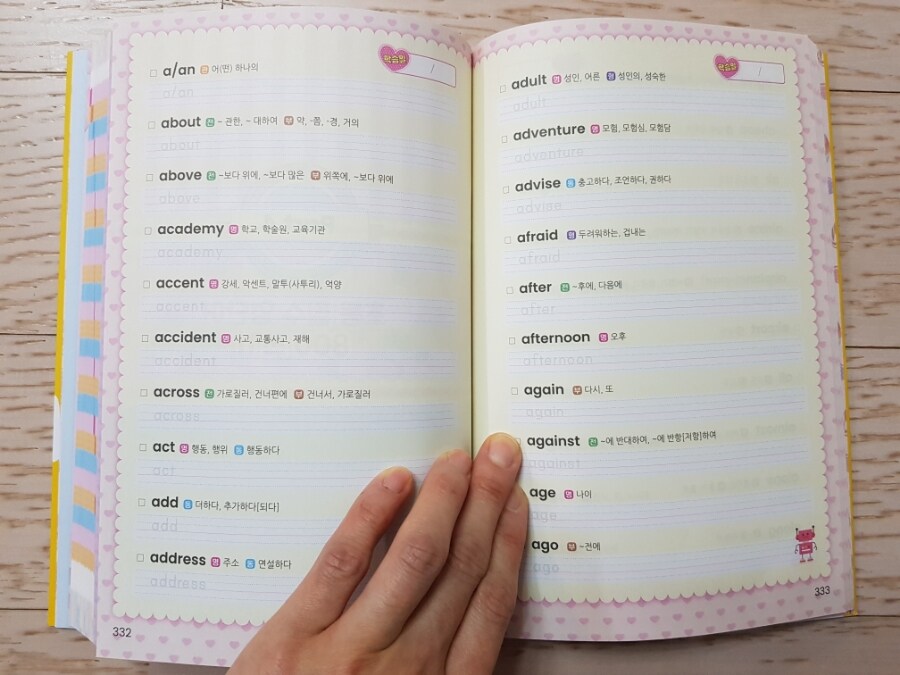 학습일 /
a/an 관 어(떤) 하나의
a/an
about 전 ~ 관한, ~ 대하여 부 약, -쯤, -경, 거의
about
above 전 ~보다 위에, ~보다 많은 부 위쪽에, ~보다 위에
above
academy 명 학교, 학술원, 교육기관
academy
accent 명 강세, 악센트, 말투(사투리), 억양
accent
accident 명 사고, 교통사고, 재해
accident
across 전 가로질러, 건너편에 부 건너서, 가로질러
across
act 명 행동, 행위 동 행동하다
act
add 동 더하다, 추가하다[되다]
add
address 명 주소 동 연설하다
address
332
학습일 /
adult 명 성인, 어른 형 성인의, 성숙한
adult
adventure 명 모험, 모험심, 모험담
adventure
advise 동 충고하다, 조언하다, 권하다
advise
afraid 형 두려워하는, 겁내는
afraid
after 전 ~후에, 다음에
after
afternoon 명 오후
afternoon
again 부 다시, 또
again
against 전 ~에 반대하여, ~에 반항[저항]하여
against
age 명 나이
age
ago 부 ~전에
ago
333